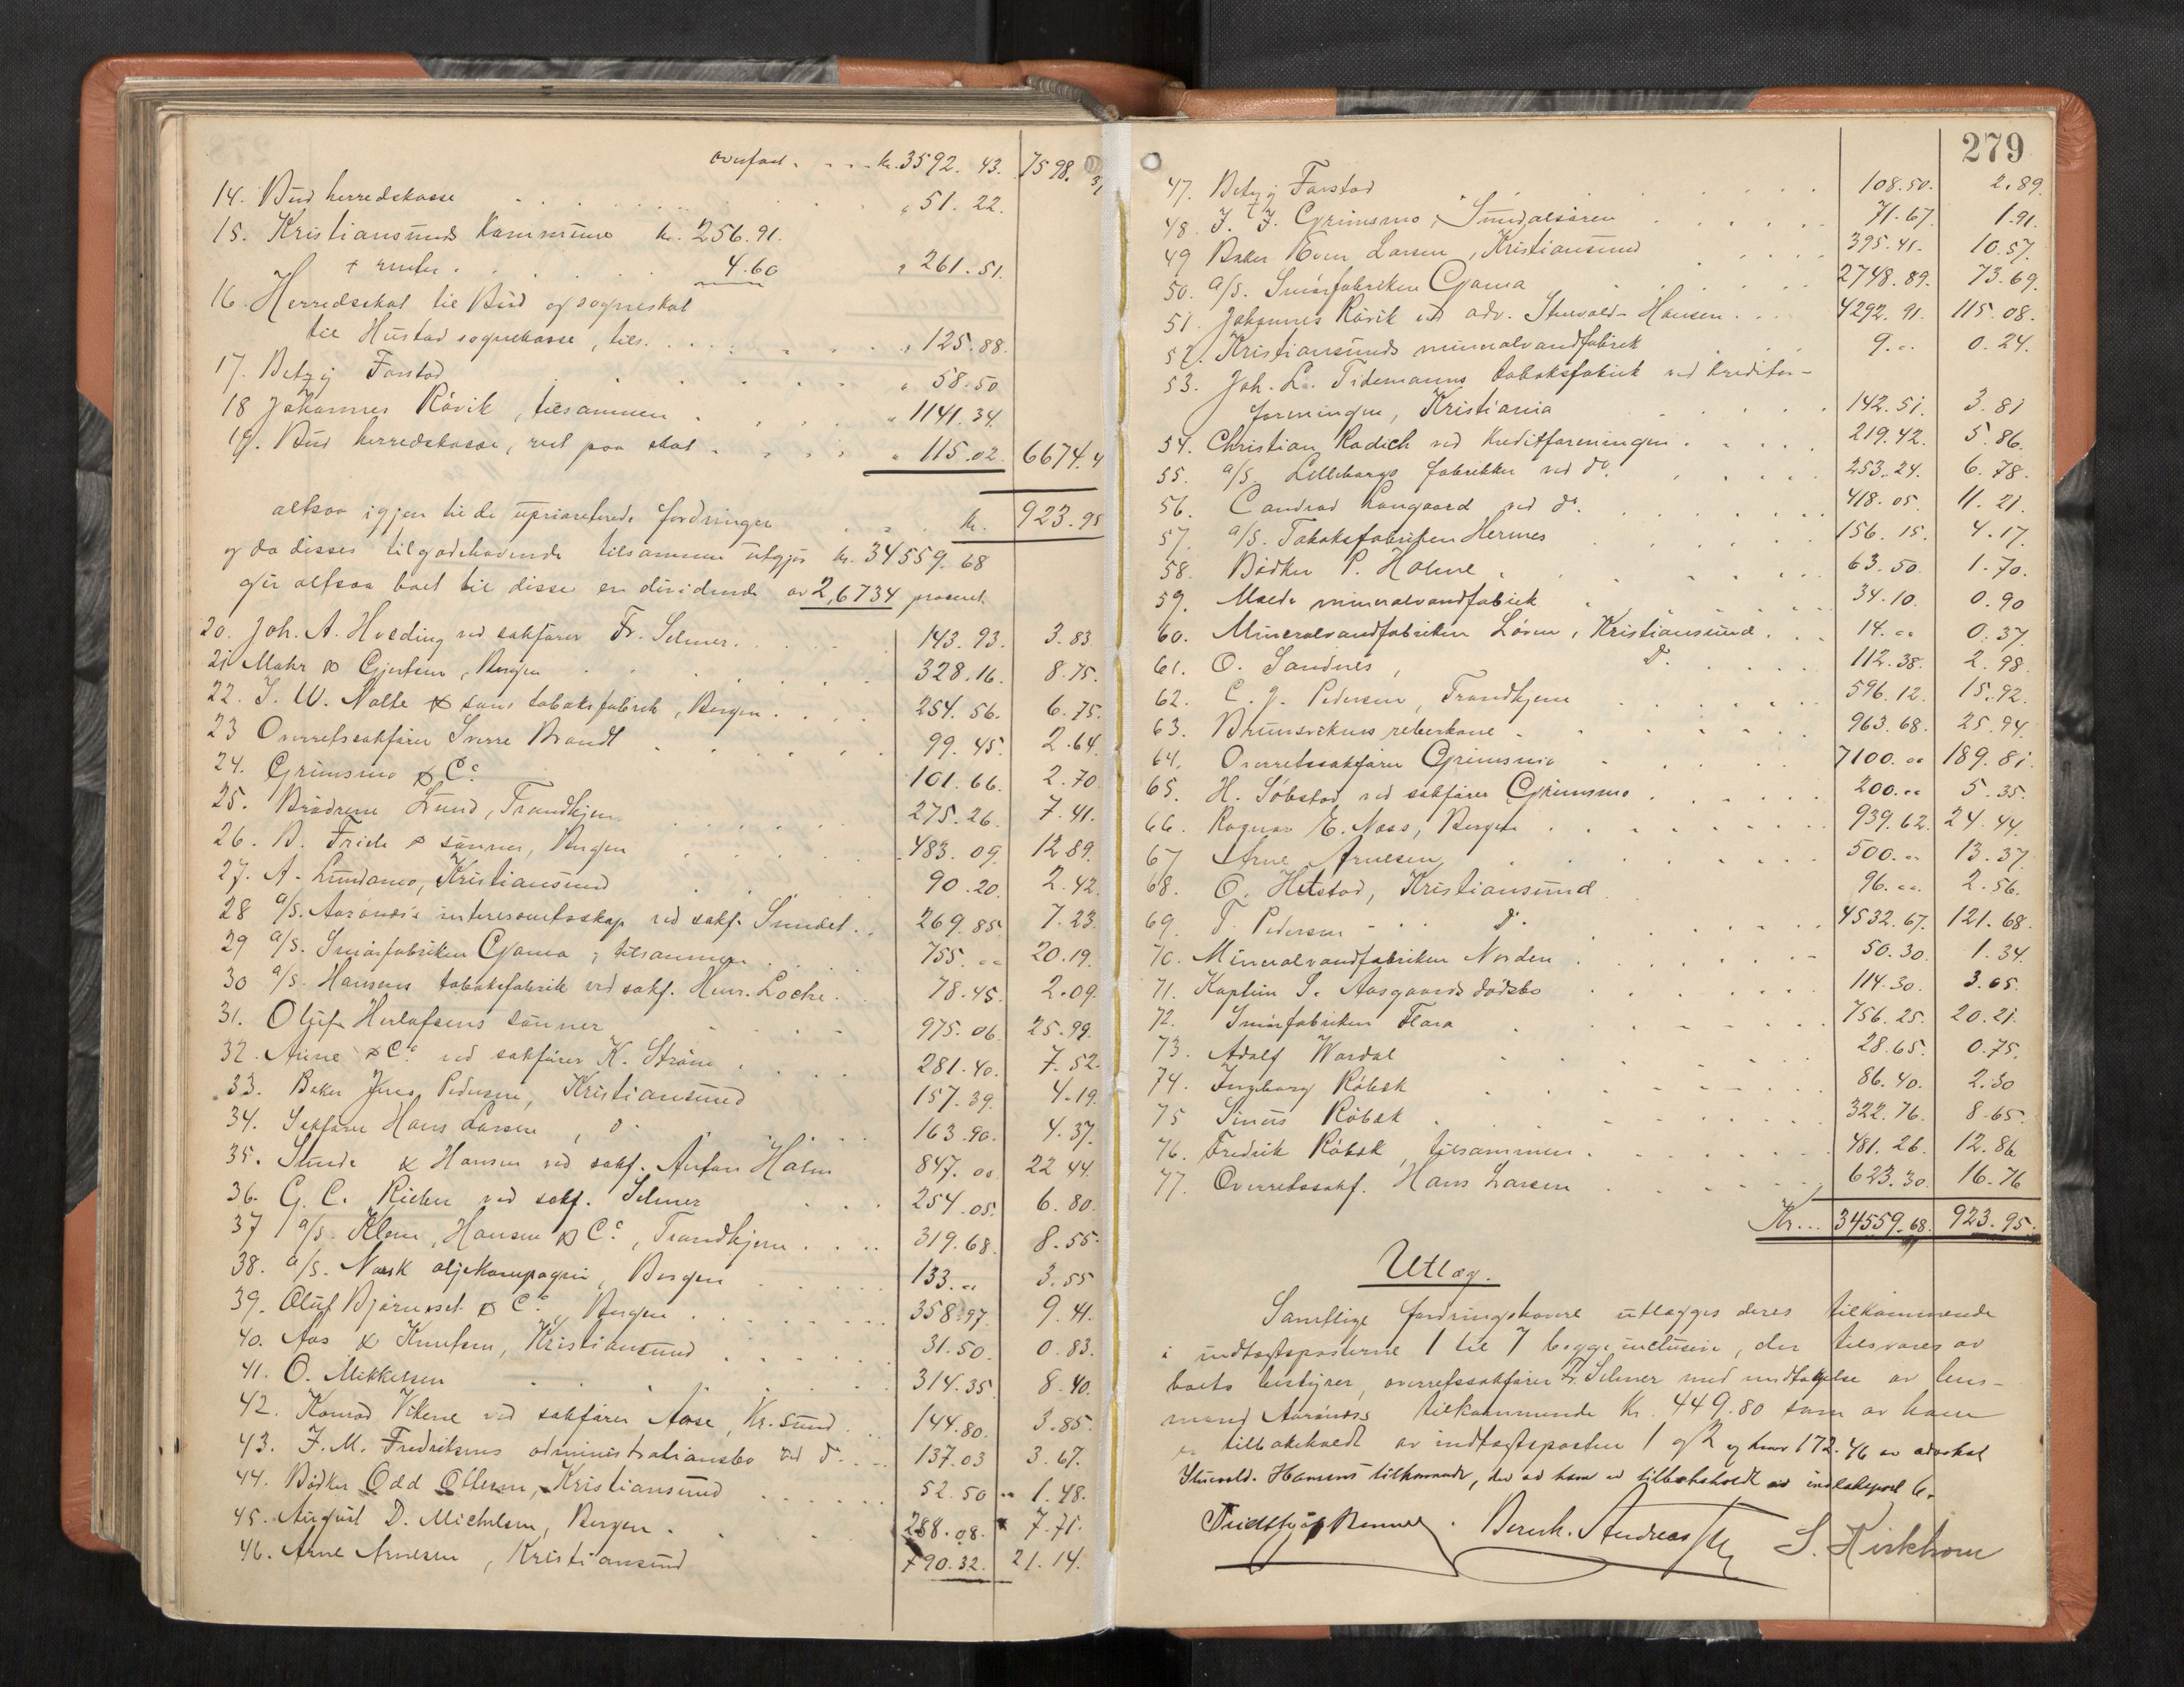 overført . . . . kr. 3592. 43. 7598.
14. Bud herredskasse . . . . . " 51. 22.
15. Kristiansunds kommune kr. 256.91.
+ renter . . . . . 4.60 " 261. 51.
16. Herredsskat til Bud og sogneskat
til Hustad sognekasse, tils. . . . . " 125.88.
17. Betzy Farstad . . . . . " 58.50
18 Johannes Råvik, tilsammen . " 1141.34.
19. Bud herredskasse, rest paa skat . . . . . " 115.02. 6674.4
altsaa igjen til de uprioriterede fordringer . . . kr. 923.95
og da disses tilgodehavende tilsammen utgjør kr. 34559. 68
gir altsaa boet til disse en dividende av 2,6734 procent.
20. Joh. A. Hveding ved sakfører Fr. Selmer. . . . . 143. 93. 3. 83
21 Mohr & Gjertsen, Bergen . . . . . 328. 16. 8. 75.
22. J. W. Nolte & søns tobaksfabrik, Bergen . . . . 254. 56. 6. 75.
23 Overretssakfører Sverre Brandt . . . . 99. 45. 2. 64.
24. Grimsmo & Co 101. 66. 2. 70.
25. Brødrene Lund, Trondhjem . . . . . 275. 26. 7. 41.
26. B. Friele & sønner, Bergen . . . . 483. 09. 12 89.
27. A. Lundamo, Kristiansund . . . 90. 20. 2. 42.
28 a/s. Aarønæs interessentsskap ved sakf. Sundet . . 269. 85. 7. 23.
29 a/s. Smørfabriken Gjama, tilsammen . . . 755. " 20. 19.
30 a/s. Hansens tobaksfabrik ved sakf. Henr. Loche . . 78. 45. 2. 09.
31. Oluf Herlofsens sønner . . . . 975. 06. 25. 99.
32. Arne & Co. ved sakfører K. Strøm . . . . 281. 40. 7. 52.
33. Baker Jens Pedersen, Kristiansund 157. 39. 4. 19.
34. Sakfører Hans Larsen, do . . . . 163. 90. 4. 37.
35. Sunde & Hansen ved sakf. Anton Holm 847. 00. 22 44.
36. G. C. Rieber ved sakf. Selmer . . . 254. 05. 6. 80.
37 a/s. Klem, Hansen & Co, Trondhjem . . . . 319. 68. 8. 55.
38. a/s. Norsk oljekompagni, Bergen . . . . 133. " 3. 55
39. Oluf Bjørneset & Co, Bergen . . . . . 358. 97. 9. 41.
40. Aas & Knutsen, Kristiansund . . . . . 31. 50. 0. 83.
41. O. Mikkelsen . . . . . 314. 35. 8. 40.
42. Konrad Vikene ved sakfører Aase, Kr.sund . . 144. 80. 3. 85.
43. J. M. Fredriksens administrationsbo ved do . . . 137. 03 3. 67.
44. Bødker Odd Ottesen, Kristiansund . . . . . 52. 50 1. 48.
45. August D. Michelsen, Bergen . . . . 288. 08. 7. 71.
46. Arne Arnesen, Kristiansund 790. 32. 21. 14.
279
47. Betzy Farstad . . . . . 108. 50. 2. 89.
48. J. J. Grimsmo, Sundalsøren . . . . . 71. 67. 1. 91.
49 Baker Even Larsen, Kristiansund . . . . 395. 41. 10. 57.
50. a/s. Smørfabriken Gjama . . . . . 2748. 89. 73. 69.
51. Johannes Råvik ved adv. Stuevold-Hansen . . . 4292. 91. 115. 08.
52. Kristiansunds mineralvandfabrik . . . 9. " 0. 24.
53. Joh. L. Tidemanns tobaksfabrik ved kreditor-
foreningen, Kristiania . . . . . 142. 51. 3. 81
54. Christian Radich ved kreditforeningen . . . . 219. 42. 5. 86.
55. a/s. Lilleborgs fabrikker ved do. . . . . 253. 24. 6. 78.
56. Conrad Langaard ved do. . . . . . 418. 05. 11. 21.
57. a/s. Tobaksfabriken Hermes . . . . . 156. 15. 4. 17.
58. Bødker P. Holme . . . . . 63. 50. 1. 70.
59. Molde mineralvandfabrik . . . . . 34. 10. 0. 90
60. Mineralvandfabriken Løven, Kristiansund . . . 14. " 0. 37.
61. O. Sandnes, do. . . . . 112. 38. 2. 98.
62. C. J. Pedersen, Trondhjem . . . . . 596. 12. 15. 92.
63. Brunsvikens reberbane . . . . . 963. 68. 25. 94.
64. Overretssakfører Grimsmo . . . . . 7100. " 189. 81.
65. H. Søbstad, ved sakfører Grimsmo . . . . . 200. " 5. 35.
66. Ragnar E. Næss, Bergen . . . . . 939. 62. 24. 44.
67 Arne Arnesen . . . . . 500. " 13. 37.
68. O. Hitstad, Kristiansund . . 96. " 2. 56.
69. T. Pedersen - do . . . . . 4532. 67. 121. 68.
70. Mineralvandfabriken Norden . . . . . 50. 30. 1. 34.
71. Kaptein S. Aasgaards dødsbo . . . . . 114. 30. 3. 05.
72. Smørfabriken Flora . . . . . 756. 25. 20. 21.
73. Adolf Wardal . . . . . 28. 65. 0. 75.
74. Ingeborg Råbek . . . . . 86. 40. 2. 30
75 Sinius Råbæk . . . . . 322. 76. 8. 65.
76. Fredrik Råbæk, tilsammen . . . . . 481. 26. 12. 86
77. Overretssakf. Hans Larsen . . . . . 623. 30. 16. 76
Kr... 34559. 68. 923. 95.
Utlæg.
Samtlige fordringshavere utlægges deres tilkommende
i indtægtsposterne 1 til 7 begge inclusive, der tilsvares av
boets bestyrer, overretssakfører Fr. Selmer med undtagelse av lens-
mand Aarønæs tilkommende kr. 449.80 som av ham
er tilbakeholdt av indtægtsposten 1 og 2 og kroner 172.46 av advokat
Stuevold-Hansens tilkommende, der av ham er tilbakeholdt av indtektspost 6.
Bernh. Andreassen S. Kirkhorn